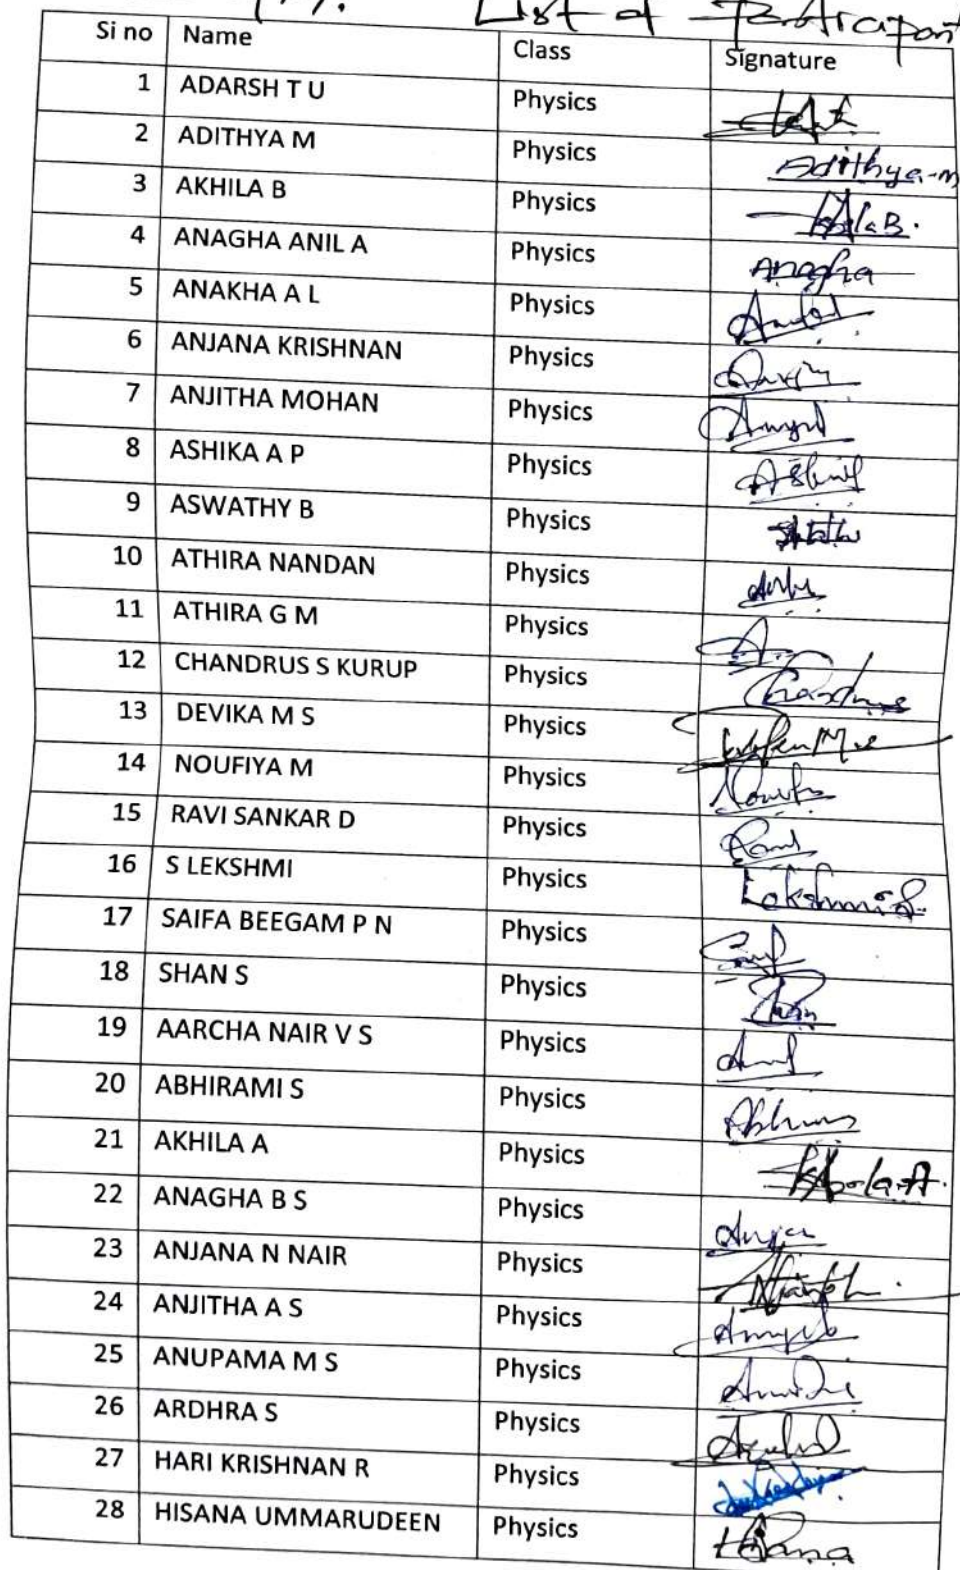 List of Participant
Si no Name Class Signature
1 ADARSH T U Physics
2 ADITHYA M Physics Adithya-m
3 AKHILA B Physics
4 ANAGHA ANIL A Physics Anagha
5 ANAKHA A L Physics
6 ANJANA KRISHNAN Physics
7 ANJITHA MOHAN Physics
8 ASHIKA A P Physics
9 ASWATHY B Physics
10 ATHIRA NANDAN Physics
11 ATHIRA G M Physics
12 CHANDRUS S KURUP Physics
13 DEVIKA M S Physics
14 NOUFIYA M Physics
15 RAVI SANKAR D Physics
16 S LEKSHMI Physics Lekshmi S
17 SAIFA BEEGAM P N Physics
18 SHAN S Physics
19 AARCHA NAIR V S Physics
20 ABHIRAMI S Physics
21 AKHILA A Physics
22 ANAGHA B S Physics
23 ANJANA N NAIR Physics
24 ANJITHA A S Physics
25 ANUPAMA M S Physics
26 ARDHRA S Physics
27 HARI KRISHNAN R Physics
28 HISANA UMMARUDEEN Physics Hisana